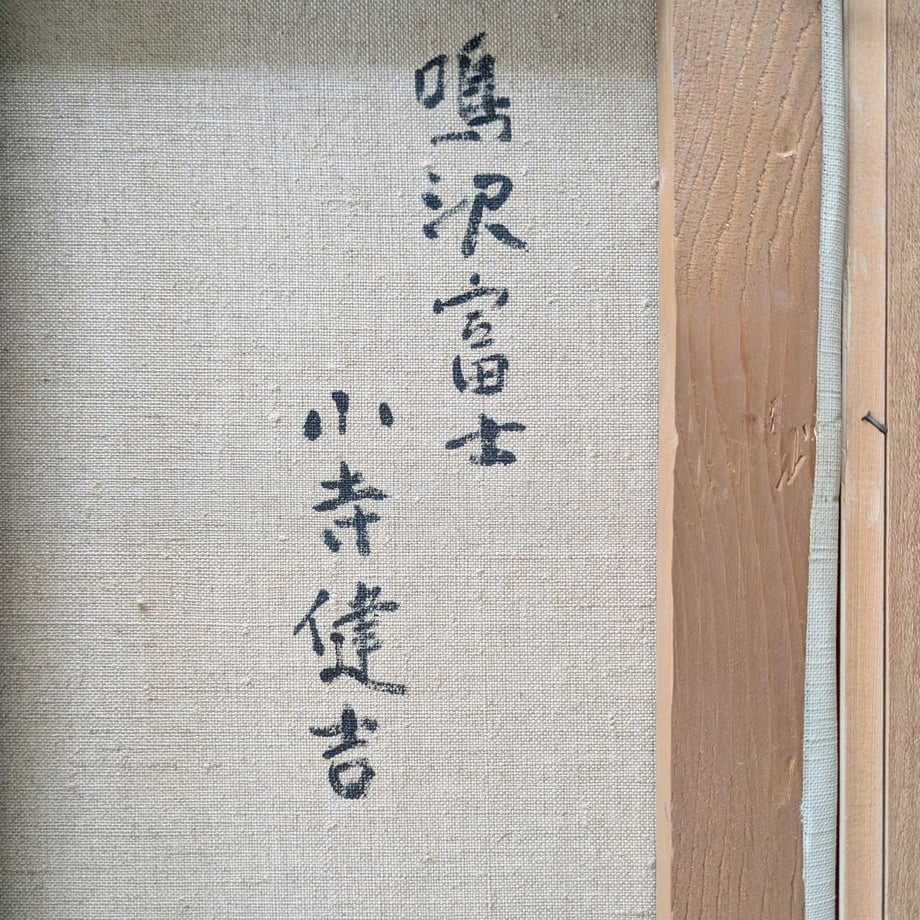 鳴沢富士
小寺健吉